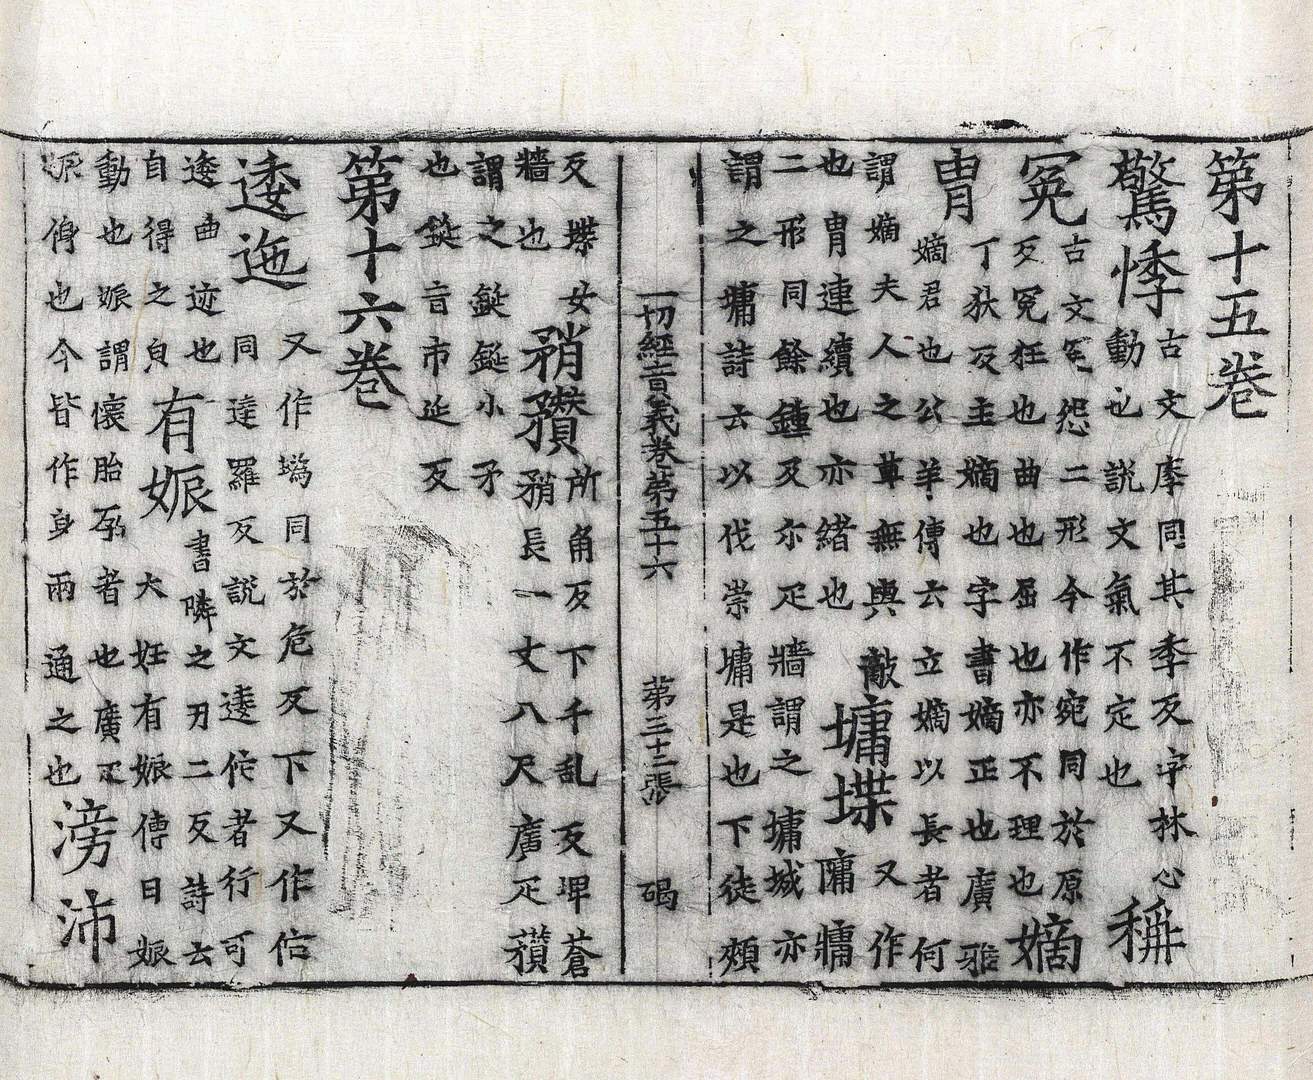 第十五卷
驚悸古文痵同其季反字林心
動也說文氣不定也稱
冤古文𡨚怨二形今作宛同於原
反冤枉也曲也屈也亦不理也嫡
丁狄反主嫡也字書嫡正也廣雅
冑嫡君也公羊傳云立嫡以長者何
謂嫡夫人之尊無與敵
也冑連續也亦緒也墉堞又作
二形同餘鍾反尒疋牆謂之墉城亦
謂之墉詩云以伐崇墉是也下徒頰
一切經音義卷第五十六 第三十三張 碣
反堞女
牆也矟穳所角反下千乱反埤蒼
矟長一丈八尺廣疋穳
謂之鋋鋋小矛
也鋋音市延反
第十六卷
逶迤又作同於危反下又作佗
同達羅反說文逶佗者行可
逶曲迹也
自得之皃有娠書鄰之刃二反詩云
大妊有娠傳曰娠
動也娠謂懷胎孕者也廣疋
娠㑗也今皆作身兩通之也滂沛